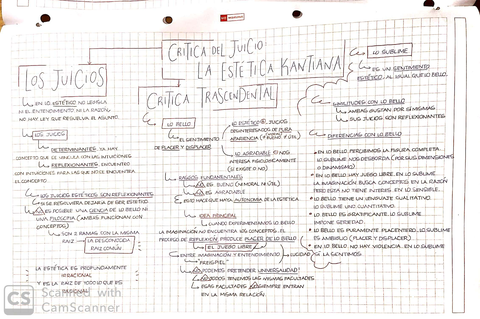 CRÍTICA DEL JUICIO:
LA ESTÉTICA KANTIANA
LOS JUICIOS
EN LO ESTÉTICO NO LEGISLA
NI EL ENTENDIMIENTO NI LA RAZÓN,
NO HAY LEY QUE RESUELVA EL ASUNTO.
LOS JUICIOS
DETERMINANTES: YA HAY
CONCEPTO QUE SE VINCULA CON LAS INTUICIONES
REFLEXIONANTES: ENCUENTRO
CON INTUICIONES PARA LAS QUE NO SE ENCUENTRA
EL CONCEPTO.
LOS JUICIOS ESTÉTICOS SON REFLEXIONANTES
SE RESOLVIERA DEJARÍA DE SER ESTÉTICO
ES POSIBLE UNA CIENCIA DE LO BELLO NI
UNA FILOSOFÍA (AMBAS FUNCIONAN CON
CONCEPTOS)
SON 2 RAMAS CON LA MISMA
RAÍZ → LA DESCONOCIDA
RAÍZ COMÚN
LA ESTÉTICA ES PROFUNDAMENTE
IRRACIONAL
Y ES LA RAÍZ DE TODO LO QUE ES
RACIONAL
CRÍTICA TRASCENDENTAL
LO BELLO
EL SENTIMIENTO
DE PLACER Y DISPLACER
LO ESTÉTICO JUICIOS
DESINTERESADOS DE PURA
APARIENCIA
LO AGRADABLE NOS
INTERESA FISIOLÓGICAMENTE
(SI EXISTE O NO)
RASGOS FUNDAMENTALES
ES BUENO (NI MORAL NI ÚTIL)
ES AGRADABLE
ESTO HACE QUE HAYA AUTONOMÍA DE LA ESTÉTICA
IDEA PRINCIPAL
CUANDO EXPERIMENTAMOS LO BELLO
LA IMAGINACIÓN NO ENCUENTRA LOS CONCEPTOS. EL
PROCESO DE REFLEXIÓN PRODUCE PLACER DE LO BELLO
EL JUEGO LIBRE
ENTRE IMAGINACIÓN Y ENTENDIMIENTO
"FREISPIEL"
¿PODEMOS PRETENDER UNIVERSALIDAD?
TODOS TENEMOS LAS MISMAS FACULTADES
ESAS FACULTADES SIEMPRE ENTRAN
EN LA MISMA RELACIÓN
LO SUBLIME
ES UN SENTIMIENTO
ESTÉTICO, AL IGUAL QUE LO BELLO.
SIMILITUDES CON LO BELLO
AMBAS GUSTAN POR SÍ MISMAS
SUS JUICIOS SON REFLEXIONANTES
DIFERENCIAS CON LO BELLO
EN LO BELLO, PERCIBIMOS LA FIGURA COMPLETA.
LO SUBLIME NOS DESBORDA (POR SUS DIMENSIONES
O DINAMISMO)
EN LO BELLO HAY JUEGO LIBRE. EN LO SUBLIME, LA
IMAGINACIÓN BUSCA CONCEPTOS EN LA RAZÓN
PERO ESTA NO TIENE INTERÉS EN LO SENSIBLE.
LO BELLO TIENE UN LENGUAJE CUALITATIVO
LO SUBLIME UNO CUANTITATIVO
LO BELLO ES GRATIFICANTE. LO SUBLIME
IMPONE SERIEDAD
LO BELLO ES PURAMENTE PLACENTERO, LO SUBLIME
ES AMBIGUO (PLACER Y DISPLACER)
EN LO BELLO NO HAY VIOLENCIA. EN LO SUBLIME
SÍ LA SENTIMOS
CS
Scanned with
CamScanner